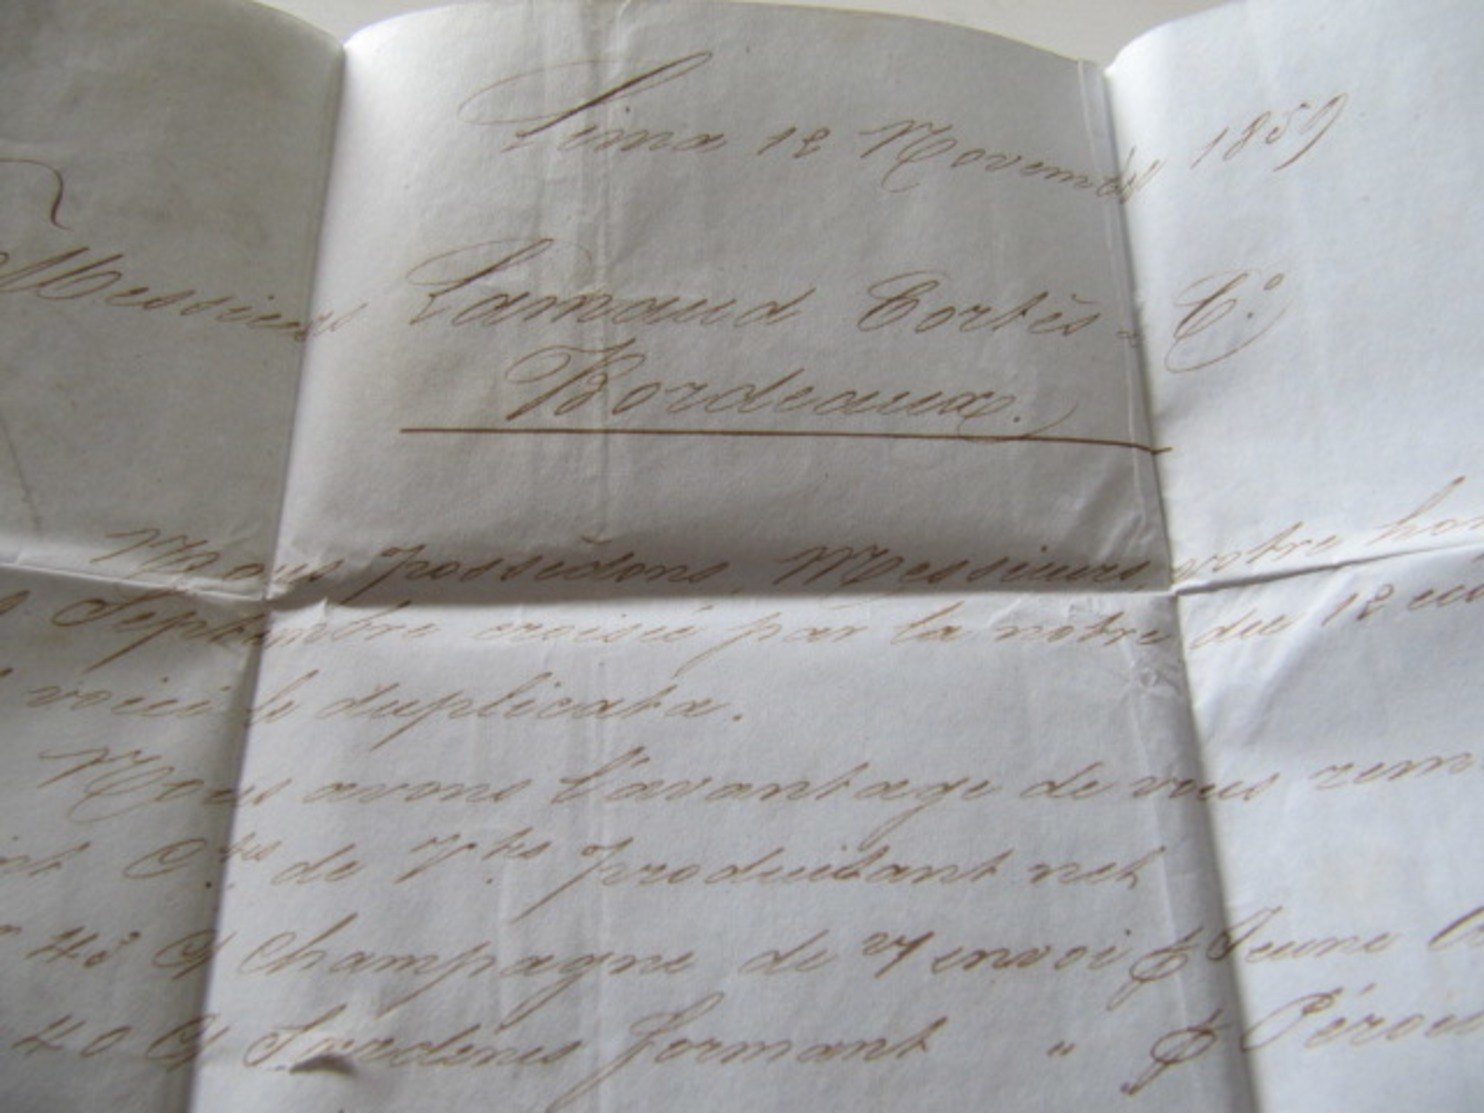 Lima 12 Novembre 1859
Messieurs Lamaud Cortès & Cº
Bordeaux.
Nous possédons, Messieurs votre
Septembre croisée par la notre du 12
voici le duplicata.
Nous avons l'avantage de vous
Ctes de Vtes produisant net
48 Cs Champagne de v/ envoi p Jeune
40 Cs Sardines formant " p